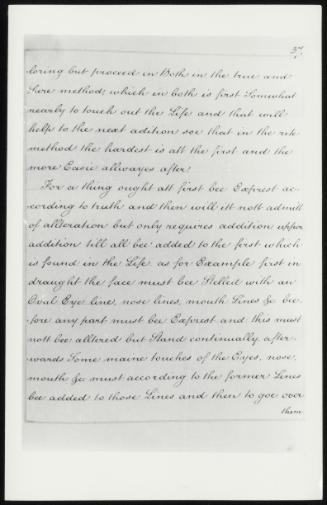 37
loring but proceed in Both in the true and
Sure method; which in both is first Somewhat
nearly to touch out the Life and that will
help to the next adition soe that in the rite
method the hardest is att the first and the
more Easie allwayes after.
For a thing ought att first bee Exprest ac-
cording to truth and then will itt nott admitt
of allteration but only requires addition uppon
addition till all bee added to the first which
is found in the Life as for Example first in
draught the face must bee Stelled with an
Oval Eye line, nose lines, mouth Lines &c be-
fore any part must bee Exprest and this must
nott bee alltered but Stand continually after-
wards Some maine touches of the Eyes, nose,
mouth &c must according to the former Lines
bee added to those Lines and then to goe over
them